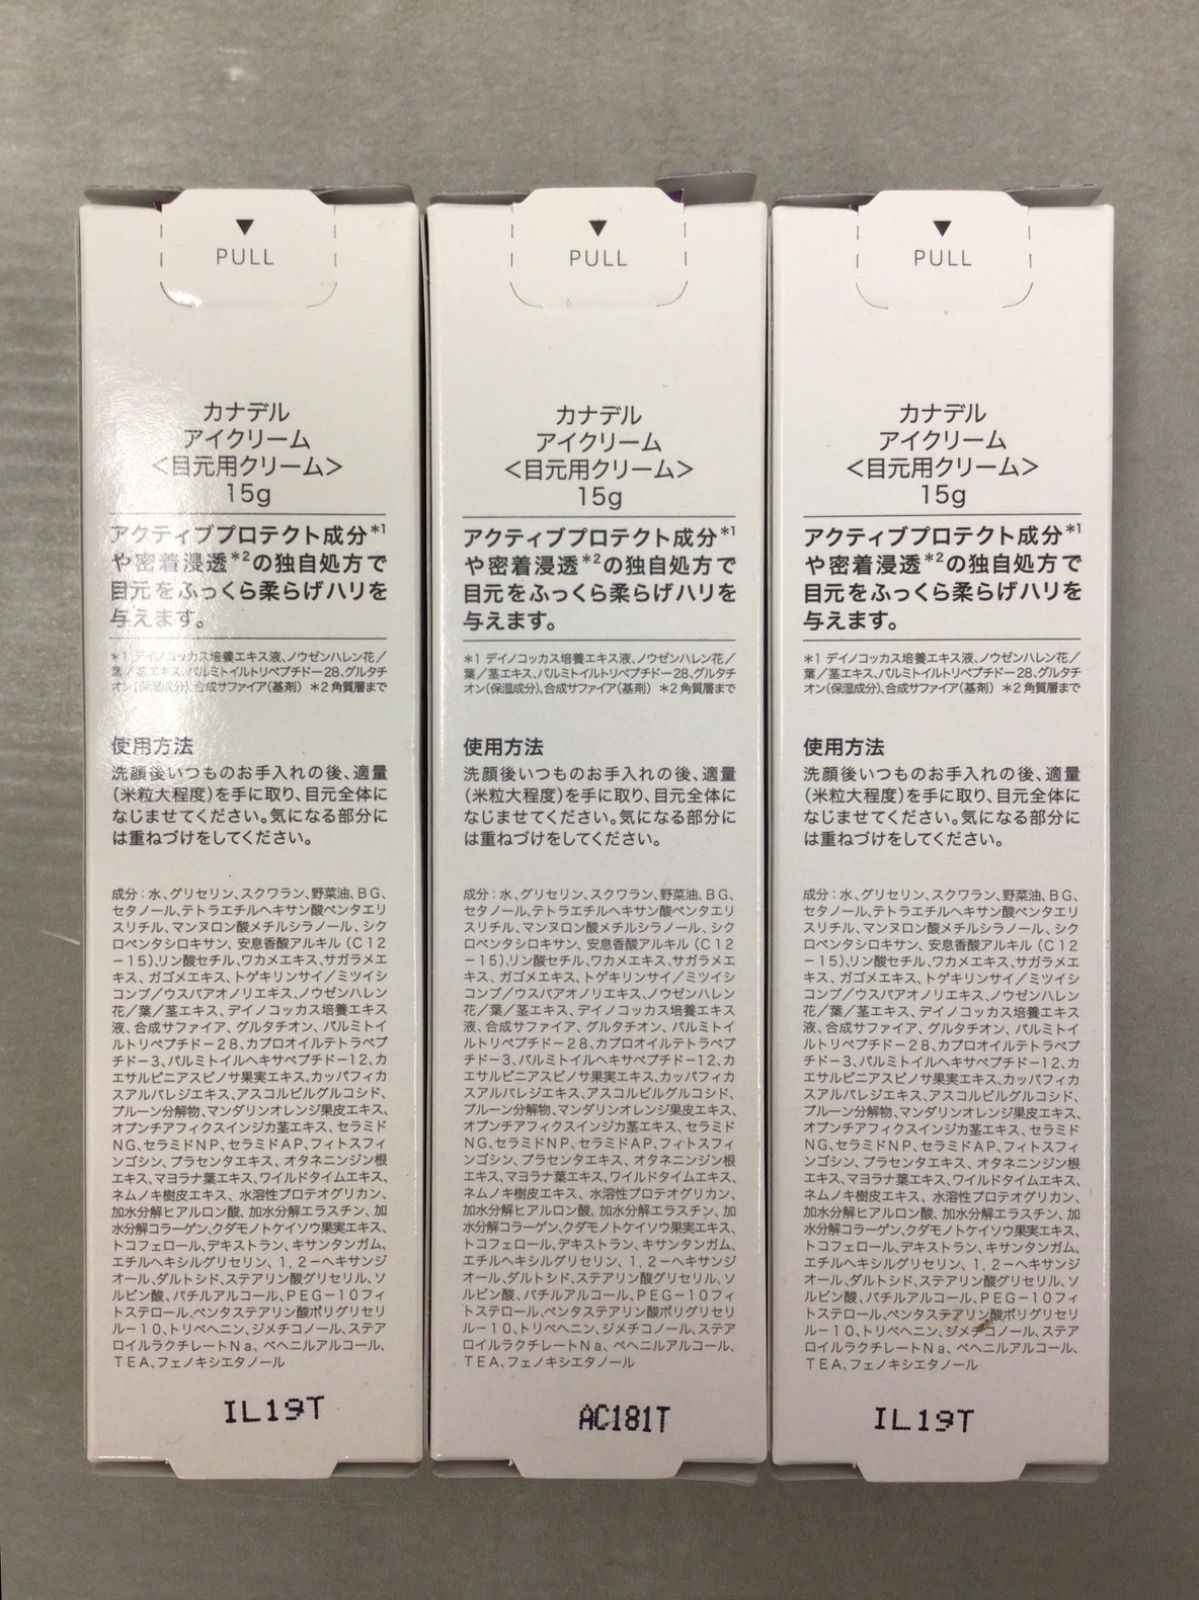 ▼
PULL
カナデル
アイクリーム
<目元用クリーム>
15g
アクティブプロテクト成分*1
や密着浸透*2の独自処方で
目元をふっくら柔らげハリを
与えます。
*1 デイノコッカス培養エキス液、ノウゼンハレン花/
葉/茎エキス、パルミトイルトリペプチド-28、グルタチ
オン(保湿成分)、合成サファイア(基剤) *2 角質層まで
使用方法
洗顔後いつものお手入れの後、適量
(米粒大程度)を手に取り、目元全体に
なじませてください。気になる部分に
は重ねづけをしてください。
成分:水、グリセリン、スクワラン、野菜油、BG、
セタノール、テトラエチルヘキサン酸ペンタエリ
スリチル、マンヌロン酸メチルシラノール、シク
ロペンタシロキサン、安息香酸アルキル(C12
-15)、リン酸セチル、ワカメエキス、サガラメエ
キス、ガゴメエキス、トゲキリンサイ/ミツイシ
コンブ/ウスバアオノリエキス、ノウゼンハレン
花/葉/茎エキス、デイノコッカス培養エキス
液、合成サファイア、グルタチオン、パルミトイ
ルトリペプチド-28、カプロオイルテトラペプ
チド-3、パルミトイルヘキサペプチド-12、カ
エサルピニアスピノサ果実エキス、カッパフィカ
スアルバレジエキス、アスコルビルグルコシド、
プルーン分解物、マンダリンオレンジ果皮エキス、
オプンチアフィクスインジカ茎エキス、セラミド
NG、セラミドNP、セラミドAP、フィトスフィ
ンゴシン、プラセンタエキス、オタネニンジン根
エキス、マヨラナ葉エキス、ワイルドタイムエキス、
ネムノキ樹皮エキス、水溶性プロテオグリカン、
加水分解ヒアルロン酸、加水分解エラスチン、加
水分解コラーゲン、クダモノトケイソウ果実エキス、
トコフェロール、デキストラン、キサンタンガム、
エチルヘキシルグリセリン、1,2-ヘキサンジ
オール、ダルトシド、ステアリン酸グリセリル、ソ
ルビン酸、バチルアルコール、PEG-10フィ
トステロール、ペンタステアリン酸ポリグリセリ
ル-10、トリベヘニン、ジメチコノール、ステア
ロイルラクチレートNa、ベヘニルアルコール、
TEA、フェノキシエタノール
IL19T
▼
PULL
カナデル
アイクリーム
<目元用クリーム>
15g
アクティブプロテクト成分*1
や密着浸透*2の独自処方で
目元をふっくら柔らげハリを
与えます。
*1 デイノコッカス培養エキス液、ノウゼンハレン花/
葉/茎エキス、パルミトイルトリペプチド-28、グルタチ
オン(保湿成分)、合成サファイア(基剤) *2 角質層まで
使用方法
洗顔後いつものお手入れの後、適量
(米粒大程度)を手に取り、目元全体に
なじませてください。気になる部分に
は重ねづけをしてください。
成分:水、グリセリン、スクワラン、野菜油、BG、
セタノール、テトラエチルヘキサン酸ペンタエリ
スリチル、マンヌロン酸メチルシラノール、シク
ロペンタシロキサン、安息香酸アルキル(C12
-15)、リン酸セチル、ワカメエキス、サガラメエ
キス、ガゴメエキス、トゲキリンサイ/ミツイシ
コンブ/ウスバアオノリエキス、ノウゼンハレン
花/葉/茎エキス、デイノコッカス培養エキス
液、合成サファイア、グルタチオン、パルミトイ
ルトリペプチド-28、カプロオイルテトラペプ
チド-3、パルミトイルヘキサペプチド-12、カ
エサルピニアスピノサ果実エキス、カッパフィカ
スアルバレジエキス、アスコルビルグルコシド、
プルーン分解物、マンダリンオレンジ果皮エキス、
オプンチアフィクスインジカ茎エキス、セラミド
NG、セラミドNP、セラミドAP、フィトスフィ
ンゴシン、プラセンタエキス、オタネニンジン根
エキス、マヨラナ葉エキス、ワイルドタイムエキス、
ネムノキ樹皮エキス、水溶性プロテオグリカン、
加水分解ヒアルロン酸、加水分解エラスチン、加
水分解コラーゲン、クダモノトケイソウ果実エキス、
トコフェロール、デキストラン、キサンタンガム、
エチルヘキシルグリセリン、1,2-ヘキサンジ
オール、ダルトシド、ステアリン酸グリセリル、ソ
ルビン酸、バチルアルコール、PEG-10フィ
トステロール、ペンタステアリン酸ポリグリセリ
ル-10、トリベヘニン、ジメチコノール、ステア
ロイルラクチレートNa、ベヘニルアルコール、
TEA、フェノキシエタノール
AC181T
▼
PULL
カナデル
アイクリーム
<目元用クリーム>
15g
アクティブプロテクト成分*1
や密着浸透*2の独自処方で
目元をふっくら柔らげハリを
与えます。
*1 デイノコッカス培養エキス液、ノウゼンハレン花/
葉/茎エキス、パルミトイルトリペプチド-28、グルタチ
オン(保湿成分)、合成サファイア(基剤) *2 角質層まで
使用方法
洗顔後いつものお手入れの後、適量
(米粒大程度)を手に取り、目元全体に
なじませてください。気になる部分に
は重ねづけをしてください。
成分:水、グリセリン、スクワラン、野菜油、BG、
セタノール、テトラエチルヘキサン酸ペンタエリ
スリチル、マンヌロン酸メチルシラノール、シク
ロペンタシロキサン、安息香酸アルキル(C12
-15)、リン酸セチル、ワカメエキス、サガラメエ
キス、ガゴメエキス、トゲキリンサイ/ミツイシ
コンブ/ウスバアオノリエキス、ノウゼンハレン
花/葉/茎エキス、デイノコッカス培養エキス
液、合成サファイア、グルタチオン、パルミトイ
ルトリペプチド-28、カプロオイルテトラペプ
チド-3、パルミトイルヘキサペプチド-12、カ
エサルピニアスピノサ果実エキス、カッパフィカ
スアルバレジエキス、アスコルビルグルコシド、
プルーン分解物、マンダリンオレンジ果皮エキス、
オプンチアフィクスインジカ茎エキス、セラミド
NG、セラミドNP、セラミドAP、フィトスフィ
ンゴシン、プラセンタエキス、オタネニンジン根
エキス、マヨラナ葉エキス、ワイルドタイムエキス、
ネムノキ樹皮エキス、水溶性プロテオグリカン、
加水分解ヒアルロン酸、加水分解エラスチン、加
水分解コラーゲン、クダモノトケイソウ果実エキス、
トコフェロール、デキストラン、キサンタンガム、
エチルヘキシルグリセリン、1,2-ヘキサンジ
オール、ダルトシド、ステアリン酸グリセリル、ソ
ルビン酸、バチルアルコール、PEG-10フィ
トステロール、ペンタステアリン酸ポリグリセリ
ル-10、トリベヘニン、ジメチコノール、ステア
ロイルラクチレートNa、ベヘニルアルコール、
TEA、フェノキシエタノール
IL19T